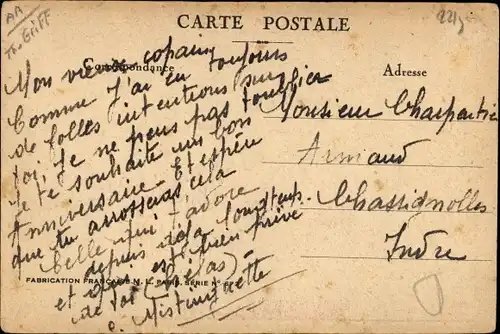 AA
The Griff
CARTE POSTALE
Correspondance
Adresse
Mon vieux copain
Comme J'ai eu toujours
de folles intentions sur
toi, Je ne peux pas t'oublier
Je te souhaite un bon
Anniversaire. Et espère
que tu arroseras cela
Celle qui t'adore
depuis déjà longtemps.
et qui est bien privé
de toi (hélas) -
C. Mistinguette
Monsieur Charpentier
Armand
Chassignolles
Indre
FABRICATION FRANÇAISE N. L. PARIS. SÉRIE N°